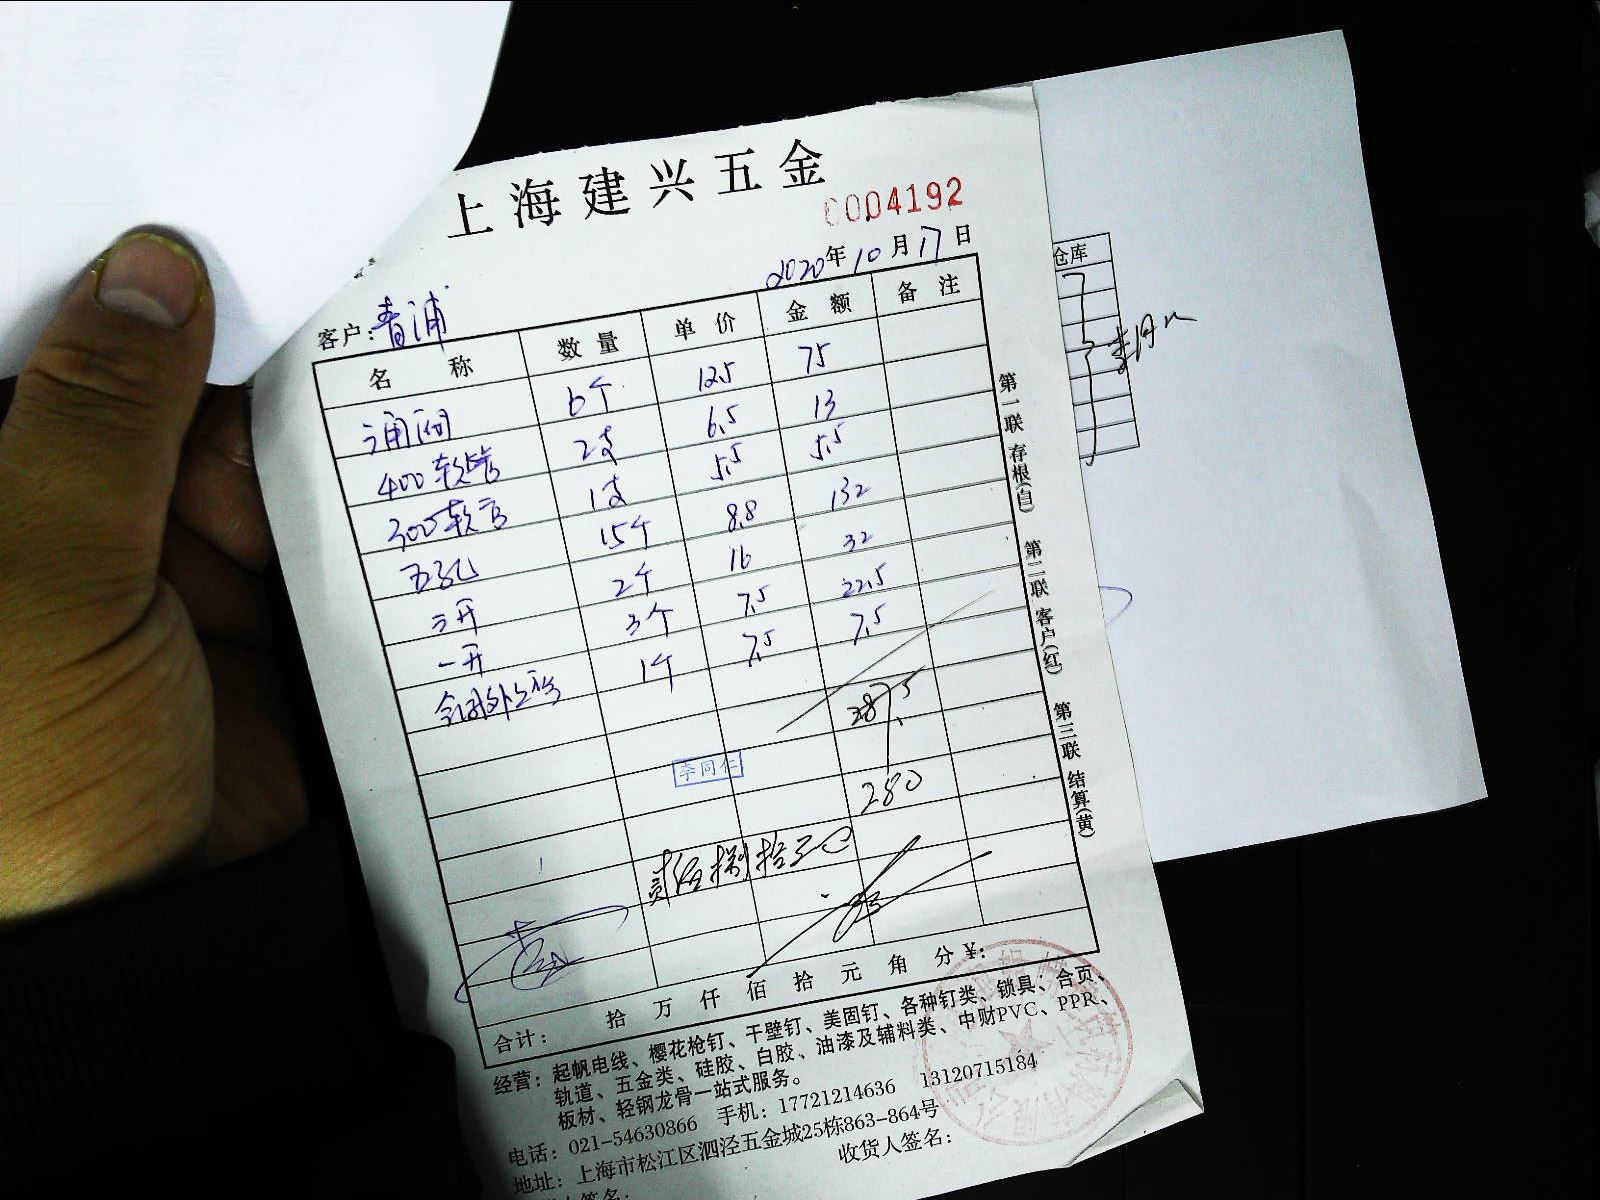 上海建兴五金
0004192
2020年10月17日
客户：青浦
名称 数量 单价 金额 备注
三角阀 6个 12.5 75
400软管 2支 6.5 13
300软管 1支 5.5 5.5
五孔 15个 8.8 132
三开 2个 16 32
一开 3个 7.5 22.5
1个 7.5 7.5
287.5
李同仁
280
贰佰捌拾元
合计： 拾 万 仟 佰 拾 元 角 分 ¥：
经营：起帆电线、樱花枪钉、干壁钉、美固钉、各种钉类、锁具、合页、
轨道、五金类、硅胶、白胶、油漆及辅料类、中财PVC、PPR、
板材、轻钢龙骨一站式服务。
电话：021-54630866 手机：17721214636 13120715184
地址：上海市松江区泗泾五金城25栋863-864号
收货人签名：
第一联 存根(白) 第二联 客户(红) 第三联 结算(黄)
仓库